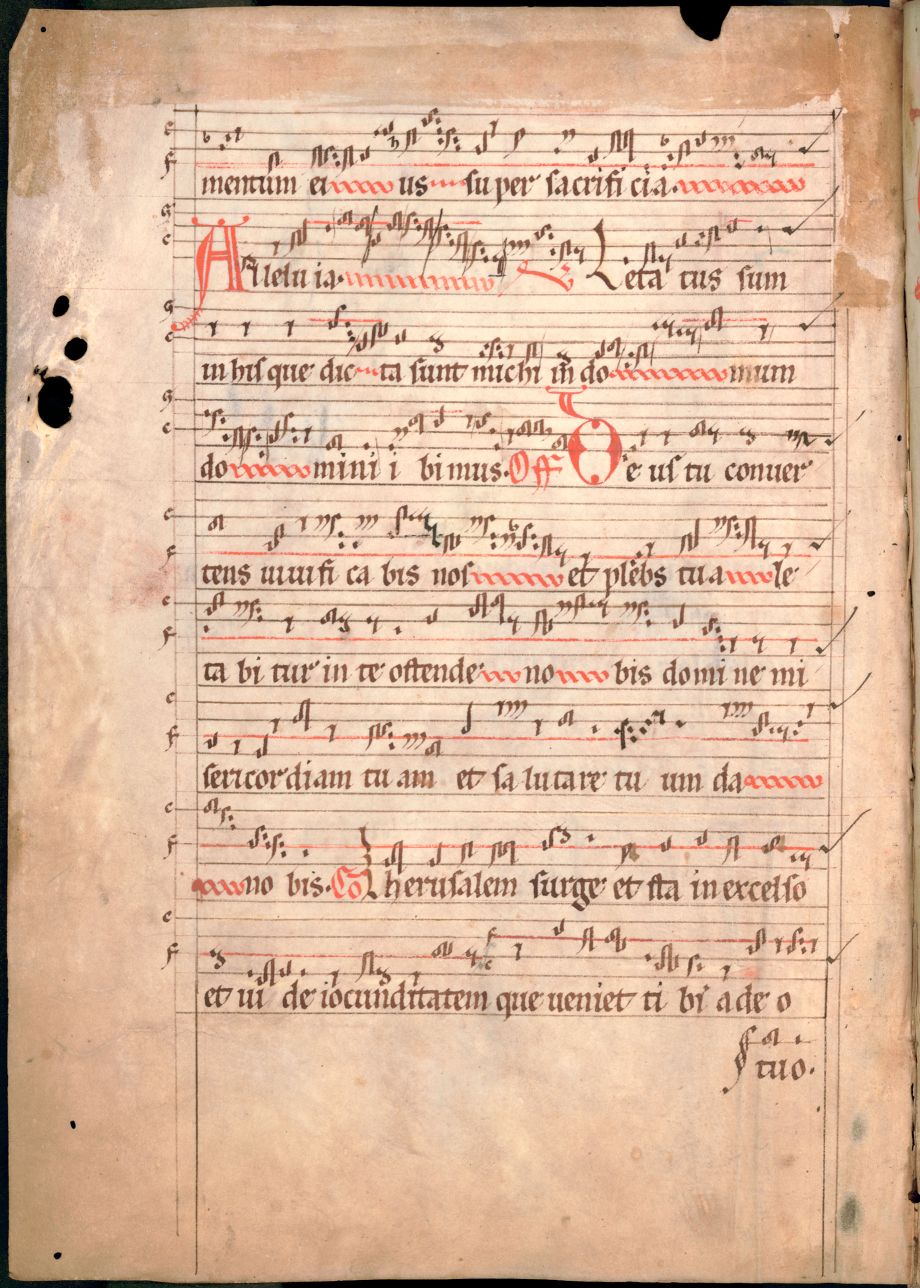 mentum ei us super sacrificia.
Alleluia. V Letatus sum
in his que dicta sunt michi in domum
domini ibimus. Off Deus tu conuer
tens uiuificabis nos et plebs tua le
tabitur in te ostende nobis domine mi
sericordiam tuam et salutare tuum da
nobis. Co Iherusalem surge et sta in excelso
et uide iocunditatem que ueniet tibi a deo
tuo.